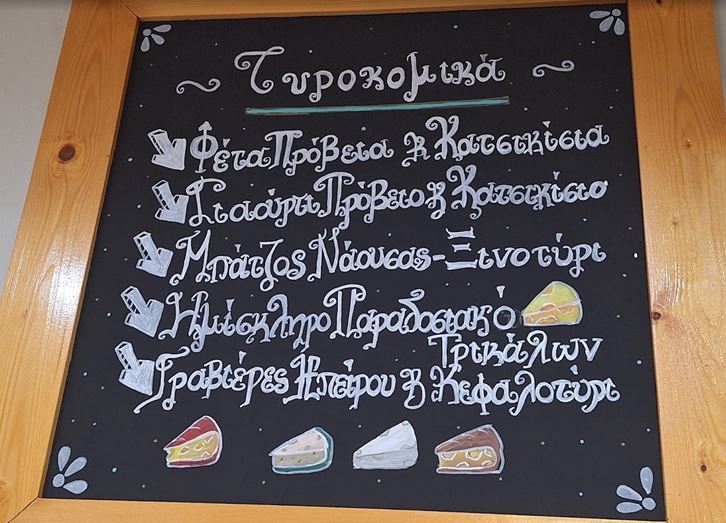 Τυροκομικά
Φέτα Πρόβεια & Κατσικίσια
Γιαούρτι Πρόβειο & Κατσικίσιο
Μπάτζος Νάουσας - Ξινοτύρι
Ημίσκληρο Παραδοσιακό
Τρικάλων
Γραβιέρες Ηπείρου & Κεφαλοτύρι